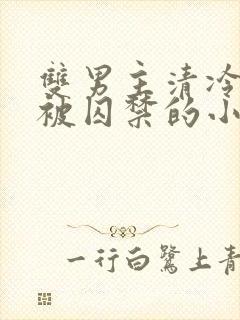 雙男主清冷
被囚禁的小
一行白鷺上青